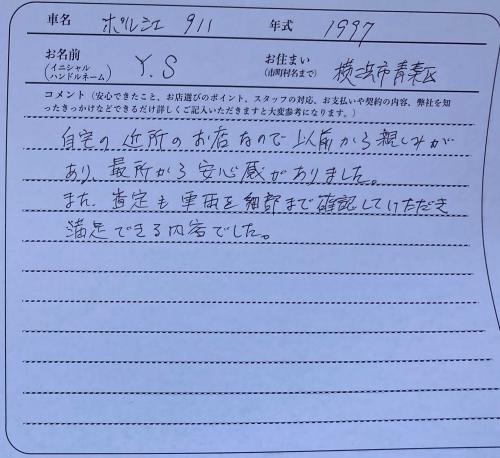 車名 ポルシェ 911 年式 1997
お名前 (イニシャル ハンドルネーム) Y.S お住まい (市町村名まで) 横浜市青葉区
コメント（安心できたこと、お店選びのポイント、スタッフの対応、お支払いや契約の内容、弊社を知
ったきっかけなどできるだけ詳しくご記入いただきますと大変参考になります。）
自宅の近所のお店なので以前から親しみが
あり、最所から安心感がありました。
また、査定も車両を細部まで確認していただき
満足できる内容でした。